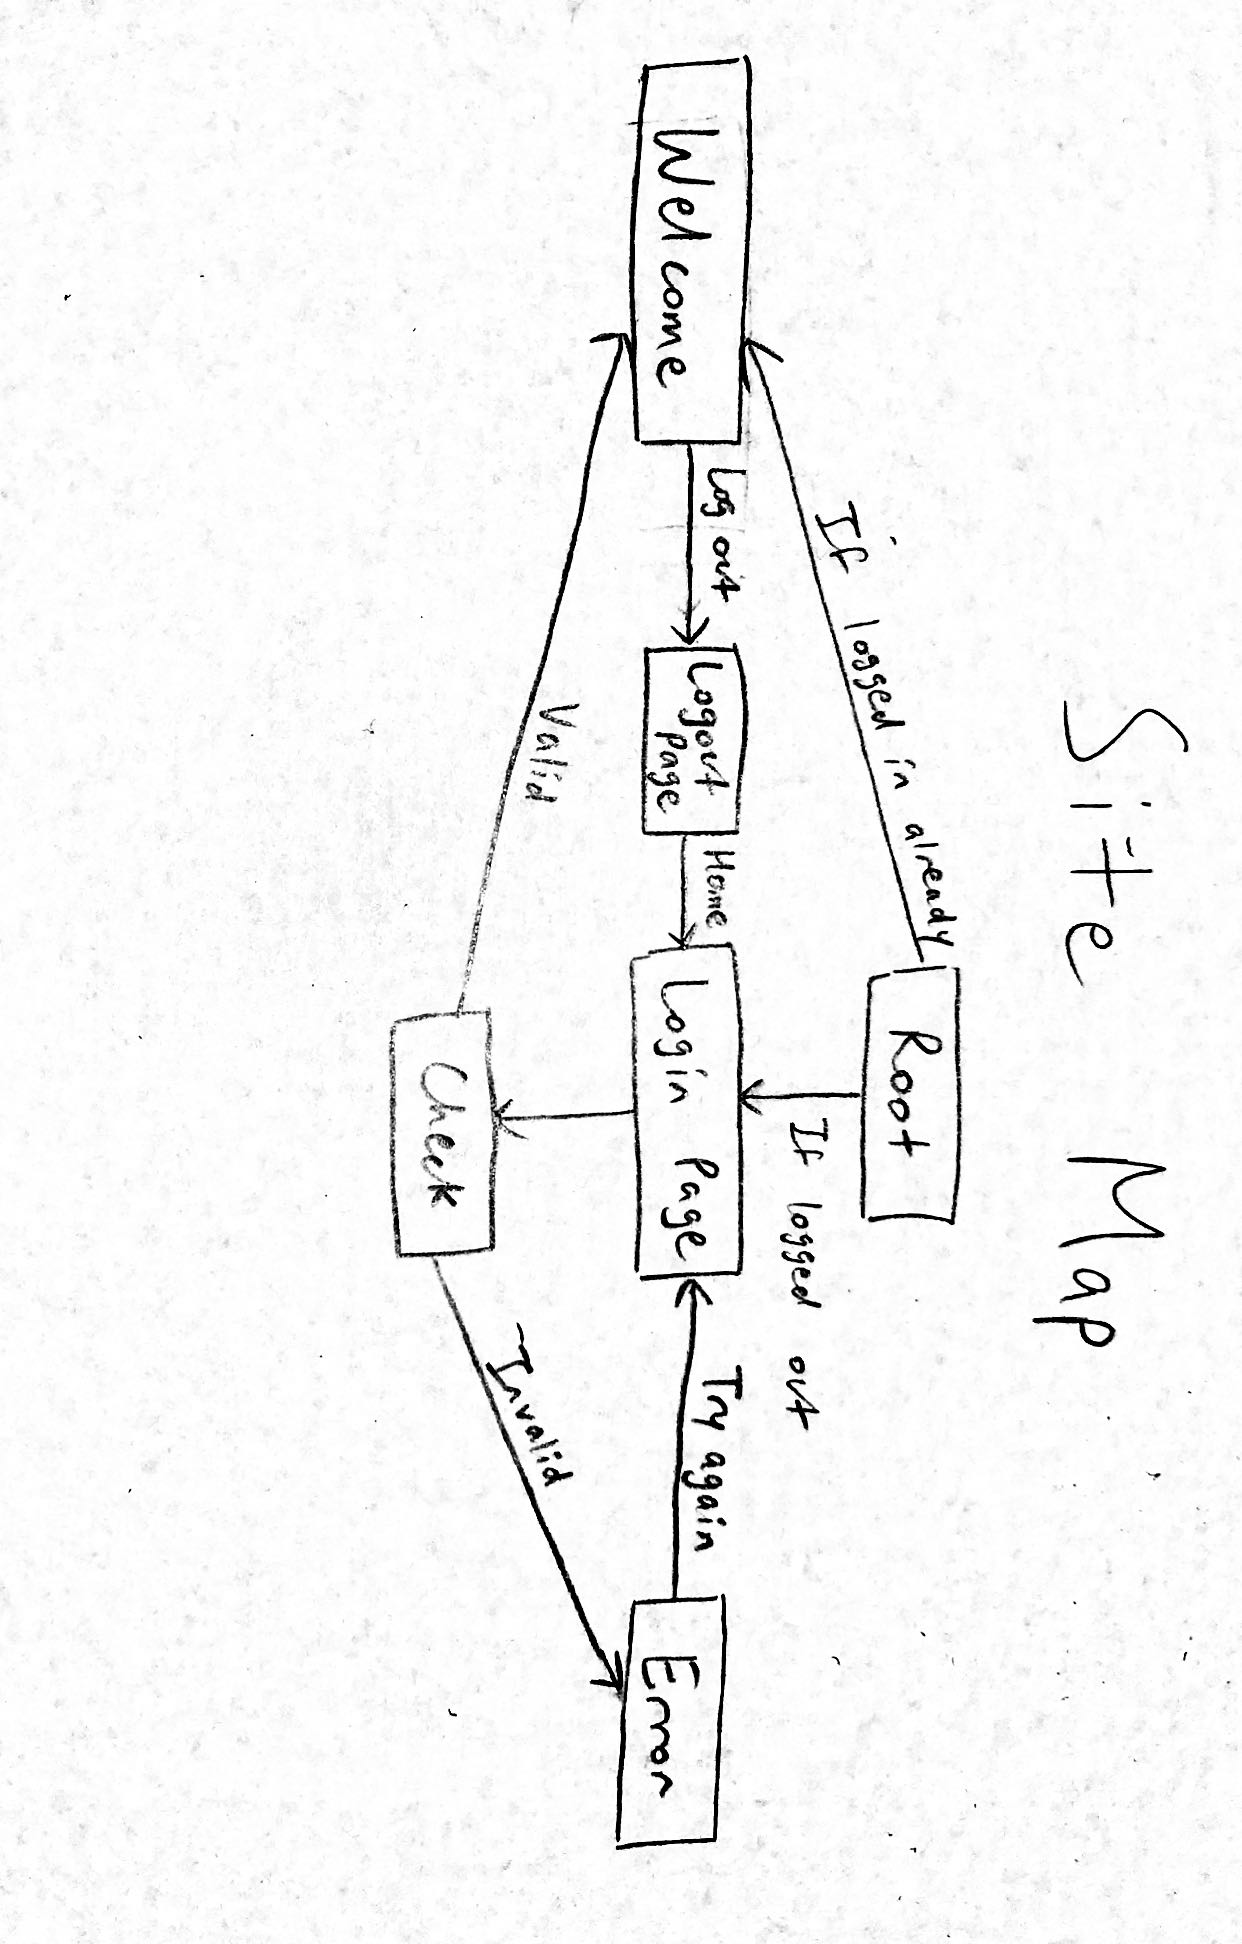 Site Map
Root
If logged in already
If logged out
Welcome
Log out
Logout
Page
Home
Login Page
Try again
Error
Valid
Invalid
Check